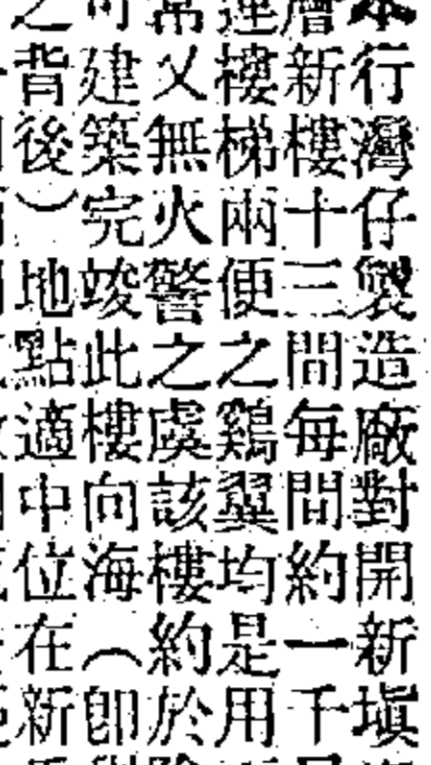 本行灣仔製造廠對開新塡
層新樓十三間每間約一千
連樓梯兩便之鷄翼均是用
常乂無火警之虞該樓約於
可建築完竣此樓向海（卽
之背後）地點適中位在新